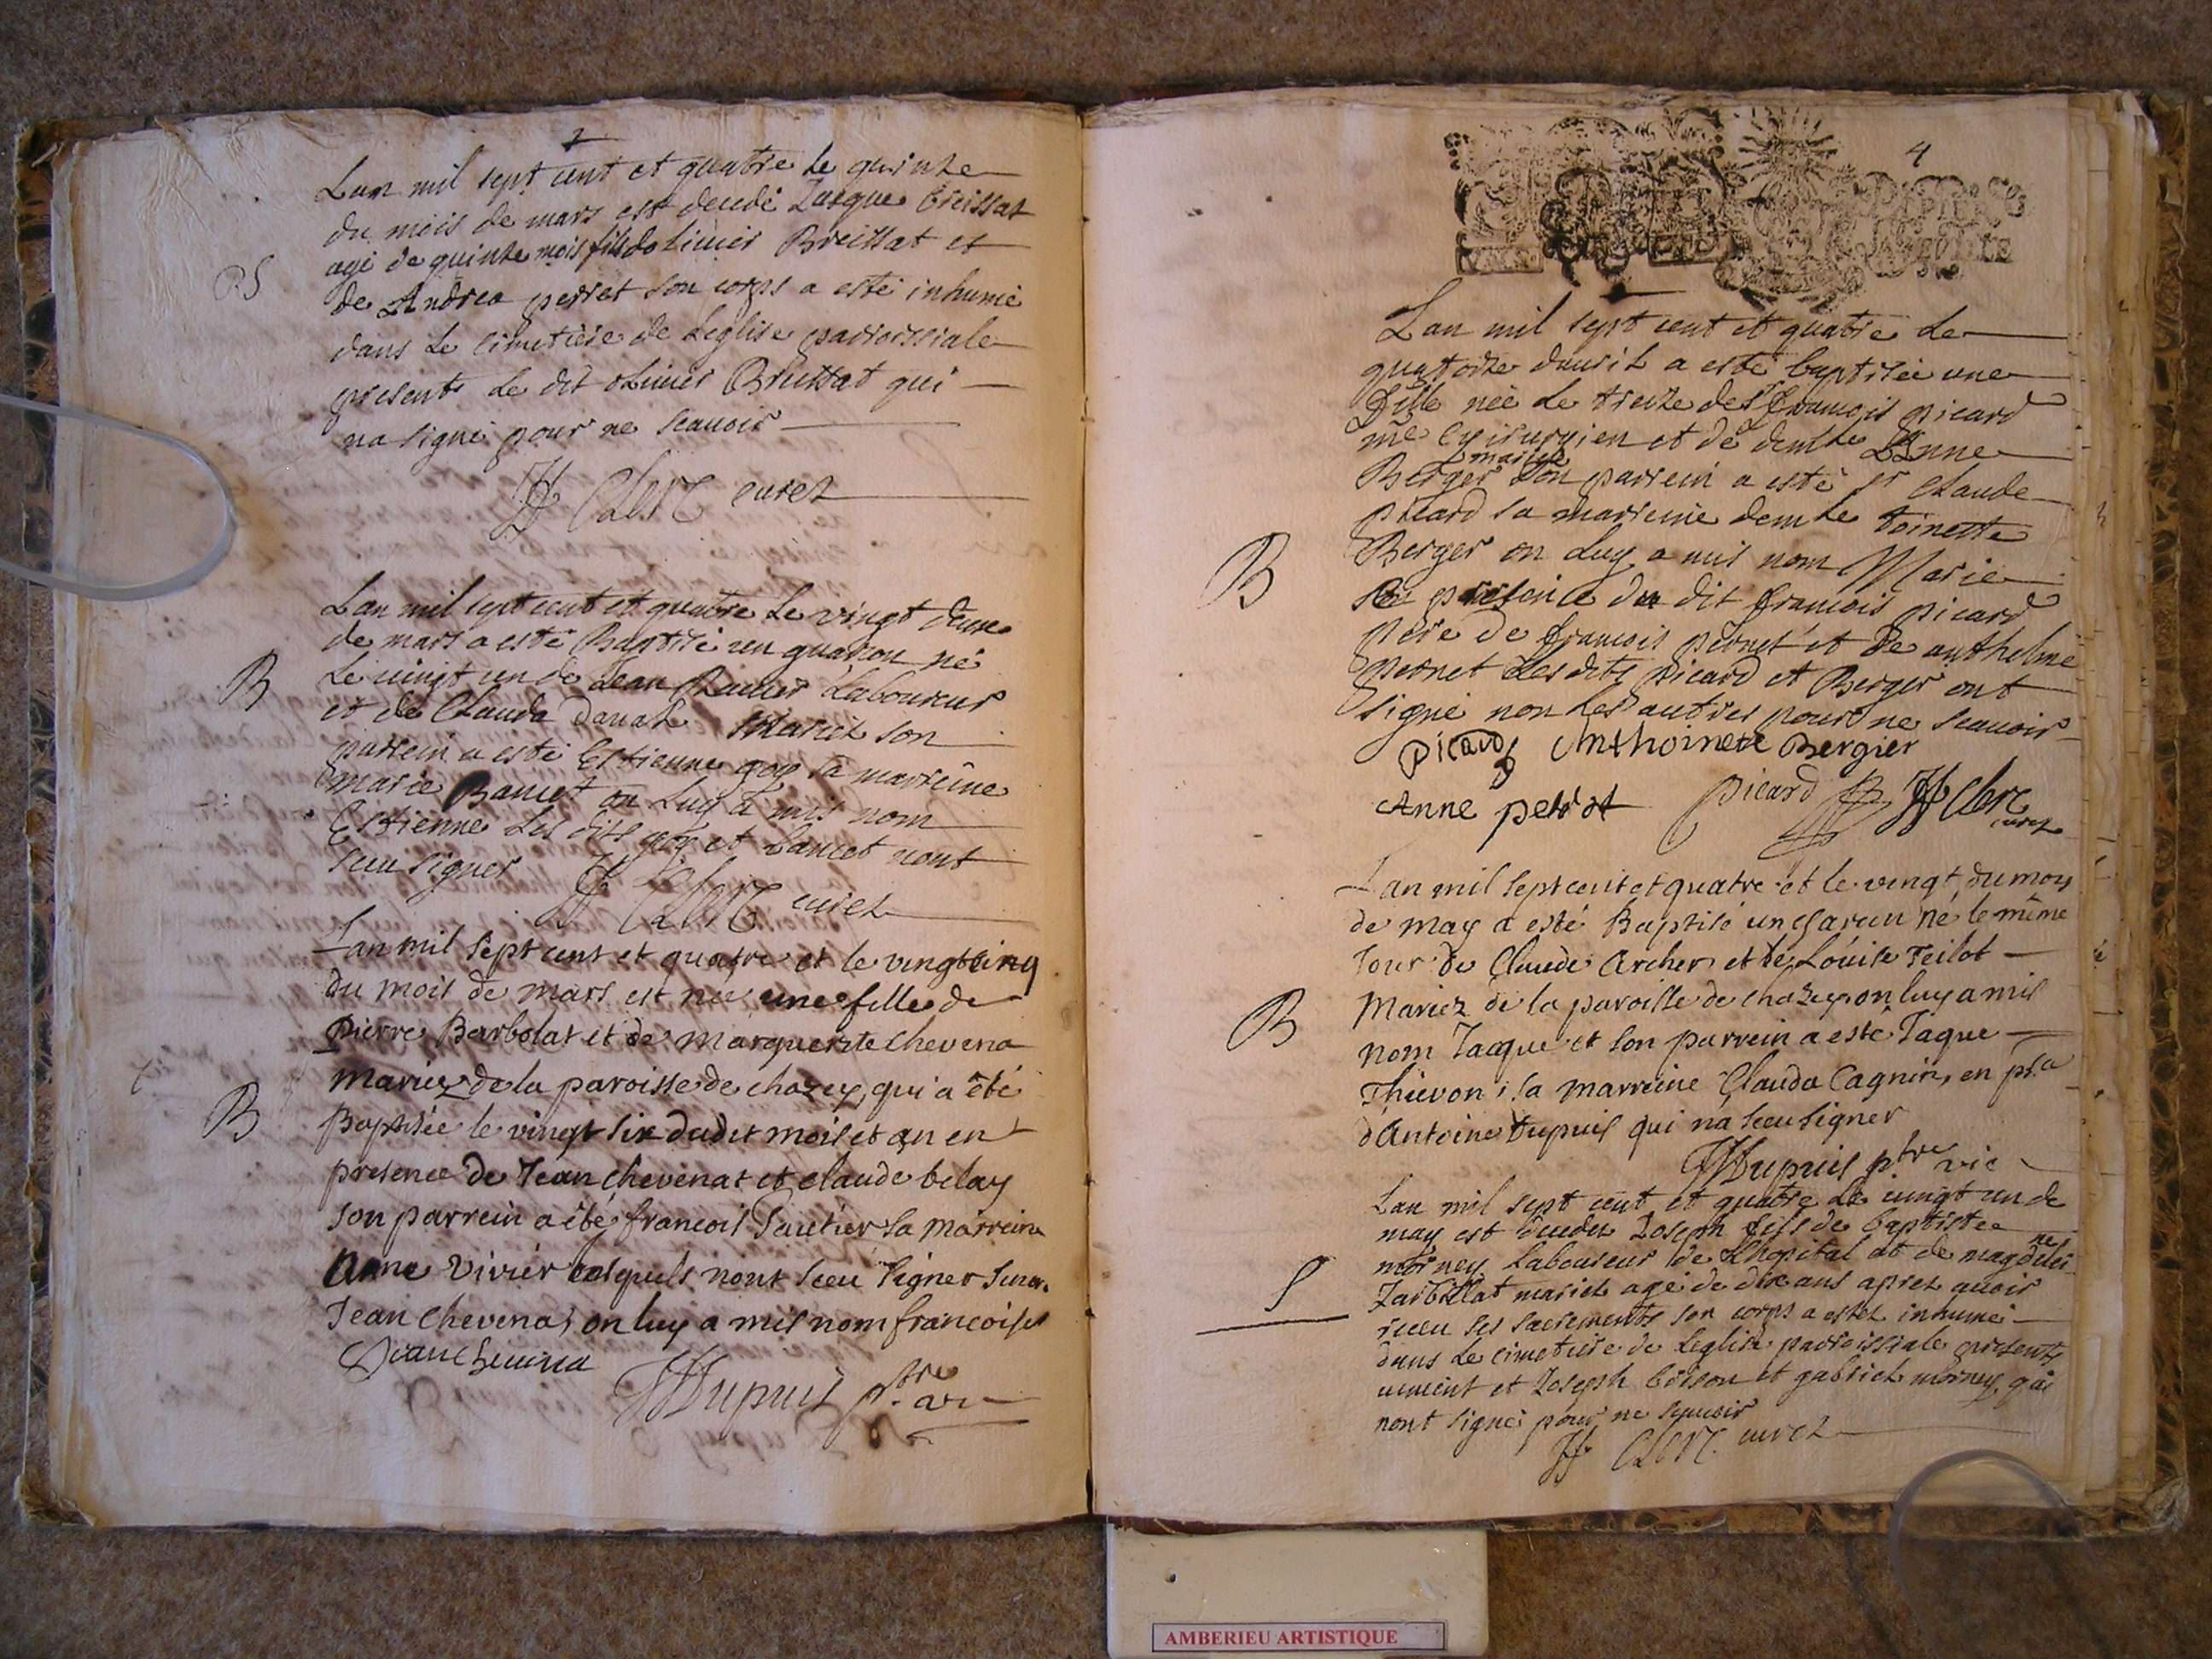 Lan mil sept cent et quatre le quinze
du mois de mars est decedé Jacque Breissat
agé de quinze mois fils dolivier Breissat et
de Andrea perret son corps a esté inhumé
dans le cimetiere de Leglise parroissiale
presents le dit olivier Breissat qui
na signé pour ne scauoir
Clerc curez
S
Lan mil sept cent et quatre le vingt deux
de mars a esté Baptisé un guarcon né
Le vingt un de Jean Laboureur
et de Clauda mariez son
parrein a esté Estienne goy sa marreine
marie Bancet on Luy a mis nom
Estienne Les dits goy et bancet nont
sceu signer Clerc curez
B
Lan mil sept cent et quatre et le vingt cinq
du mois de mars est née une fille de
Pierre Barbolat et de marguerite Chevena
mariez de la paroisse de chazey, qui a été
Baptisée le vingt six dudit mois et an en
presence de Jean Chevenat et claude belay
son parrein a été francois Gautier la marreine
Anne Vivier lesquels nont sceu signer sinon
Jean Chevena, on luy a mis nom francoise
B
Jean Chevena
JDupuis ptre vic
4
Lan mil sept cent et quatre Le
quatorze dauril a esté baptisée une
fille née le treize de sr francois picard
me Chirurgien et de demlle Anne
Berger mariez Son parrein a esté sr Claude
picard sa marreine demlle toinette
Berger on Luy a mis nom Marie
En presence du dit francois picard
pere de francois pernet et de anthelme
pernet Lesdits picard et Berger ont
signé non les autres pour ne scauoir
B
picard Anthoinete Bergier
Anne perrot picard Clerc
curez
Lan mil sept cent et quatre et le vingt du moys
de may a esté Baptisé un garcon né le même
Jour de Claude Archer et de Louise Teilot
Mariez de la paroisse de chazey on luy a mis
nom Jacque et son parrein a esté Jaque
Thievon, sa marreine Clauda Cagnin, en psce
dAntoine Dupuis qui na sceu signer
B
JDupuis ptre vic
Lan mil sept cent et quatre Le vingt un de
may est decedez Joseph fils de baptiste
morney Laboureur de Lhopital et de magdelei
ne
Jarbillat mariez agé de dix ans aprez auoir
receu ses sacrements son corps a estez inhumé
dans Le cimetiere de Leglise parroissiale presents
et Joseph brison et gabriel morney qui
nont signé pour ne scauoir
S
Clerc curez
AMBERIEU ARTISTIQUE